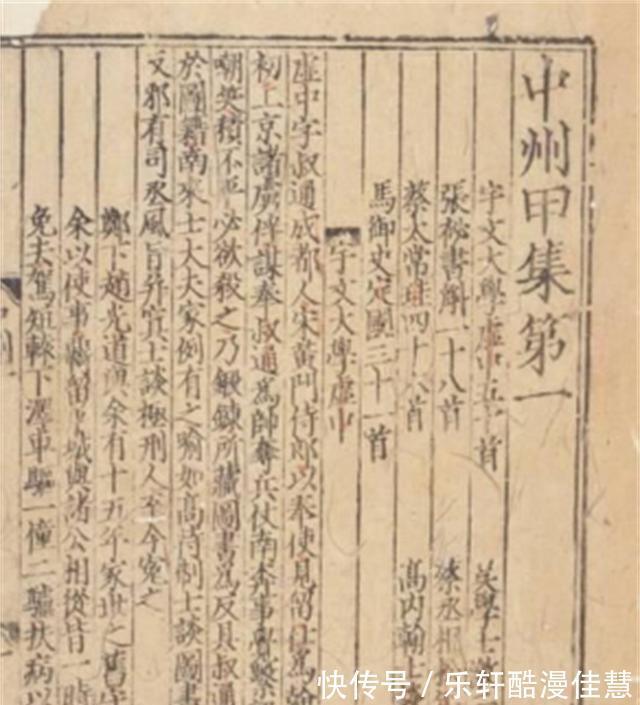 中州甲集第一
宇文大學虛中五十首 吳學士
張祕書斛一十八首 蔡丞相
蔡太常珪四十六首 高內翰士
馬御史定國三十一首
宇文大學虛中
虛中字叔通成都人宋黃門侍郎以奉使見留仕為翰
初上京諸虜俘謀奉叔通為帥奪兵仗南奔事覺繫
嘲笑積不平必欲殺之乃鍛鍊所藏圖書為反具叔通
於圖籍南來士大夫家例有之喻如高待制士談圖書
文邪有司承風旨并寘士談極刑人至今冤之
趙光道與余有十五年家世之舊守
余以使事羈留平城與諸公相從昔一時
免夫駕短轅下澤車驅一僮二驢扶病以
快传号 / 乐轩酷漫佳慧